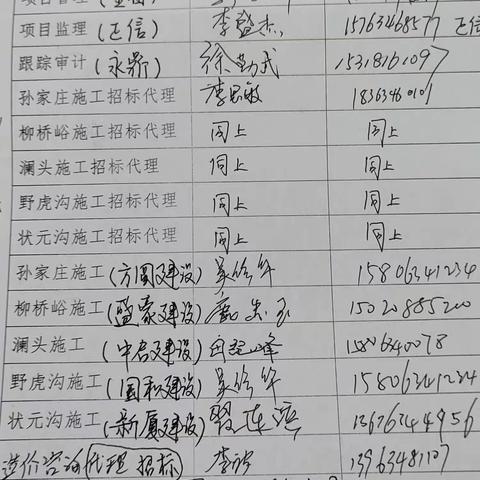 项目监理 (正信) 李盛杰 15763468577 正信
跟踪审计 (永鼎) 徐勤武 15318161097
孙家庄施工招标代理 李思敏 18363460101
柳桥峪施工招标代理 同上 同上
澜头施工招标代理 同上 同上
野虎沟施工招标代理 同上 同上
状元沟施工招标代理 同上 同上
孙家庄施工 (方圆建设) 15806341234
柳桥峪施工 (盛豪建设) 15020885200
澜头施工 (中启建设) 峰 15806340078
野虎沟施工 (国和建设) 15806341234
状元沟施工 (新厦建设) 13676344956
造价咨询 (代理 招标) 李 13963481107